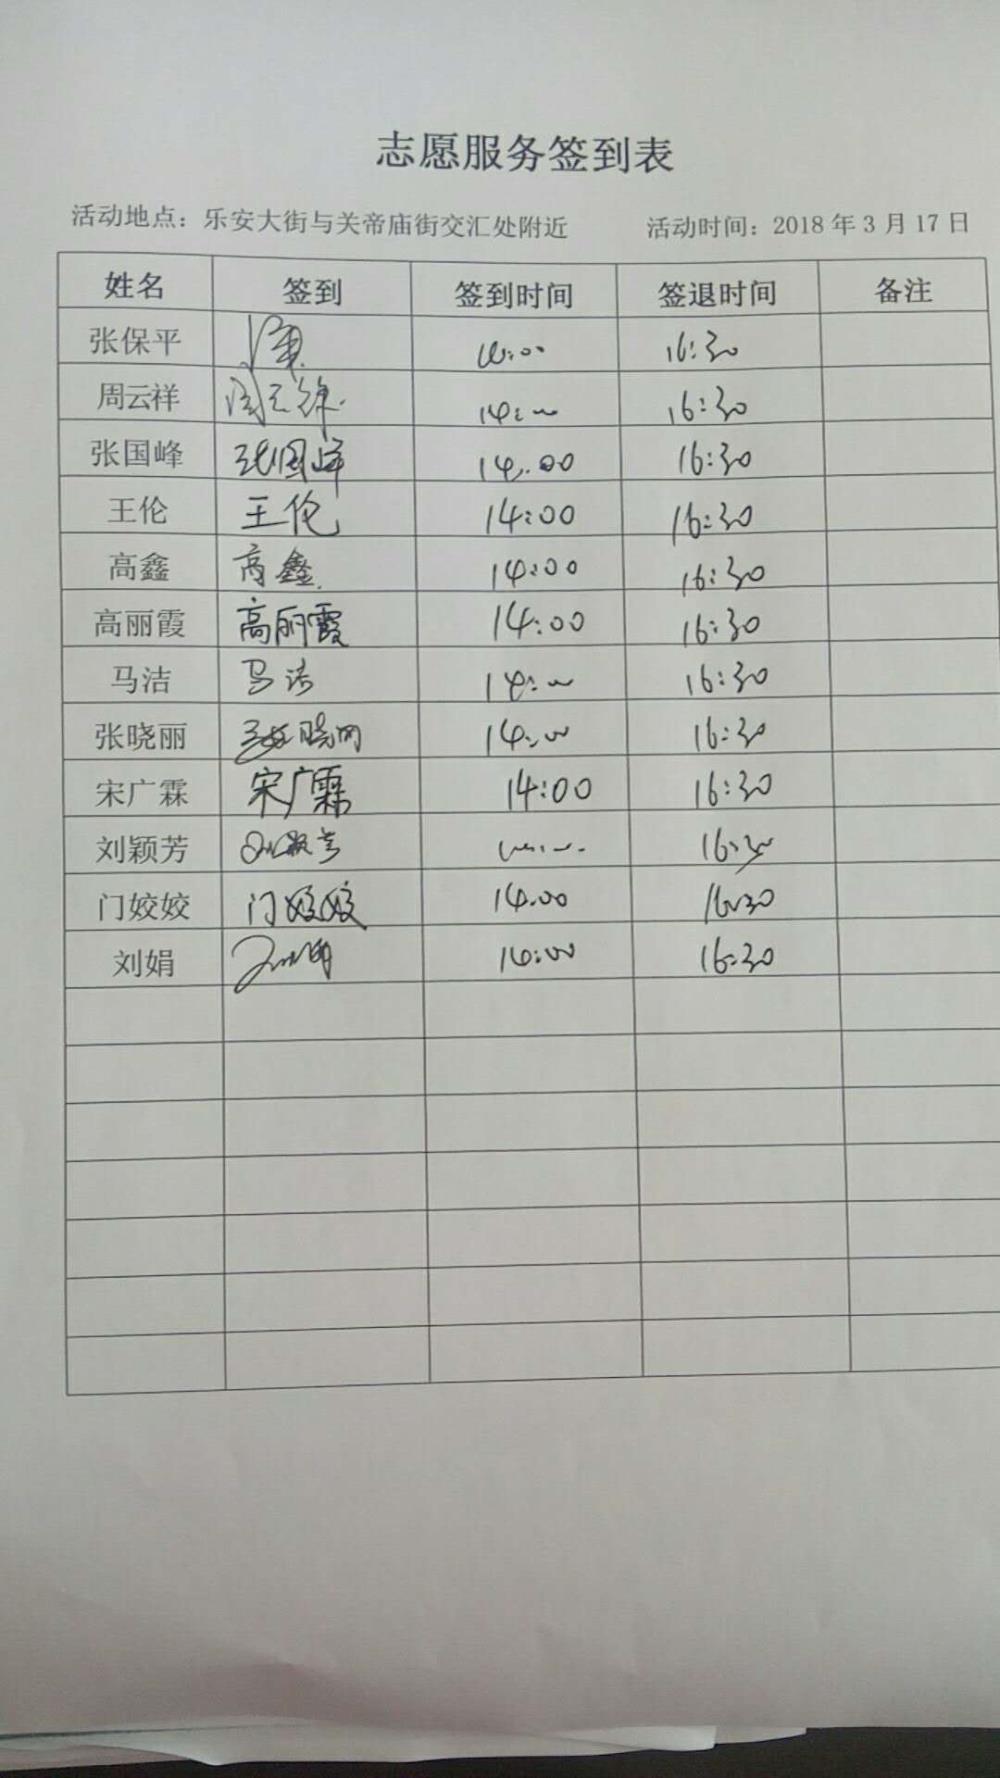 志愿服务签到表
活动地点：乐安大街与关帝庙街交汇处附近 活动时间：2018年3月17日
姓名 签到 签到时间 签退时间 备注
张保平 16:30
周云祥 周云祥 14:00 16:30
张国峰 张国峰 14:00 16:30
王伦 王伦 14:00 16:30
高鑫 高鑫 14:00 16:30
高丽霞 高丽霞 14:00 16:30
马洁 马洁 14:00 16:30
张晓丽 张晓丽 14:00 16:30
宋广霖 宋广霖 14:00 16:30
刘颖芳 刘颖芳 16:30
门姣姣 门姣姣 14:00 16:30
刘娟 刘娟 14:00 16:30